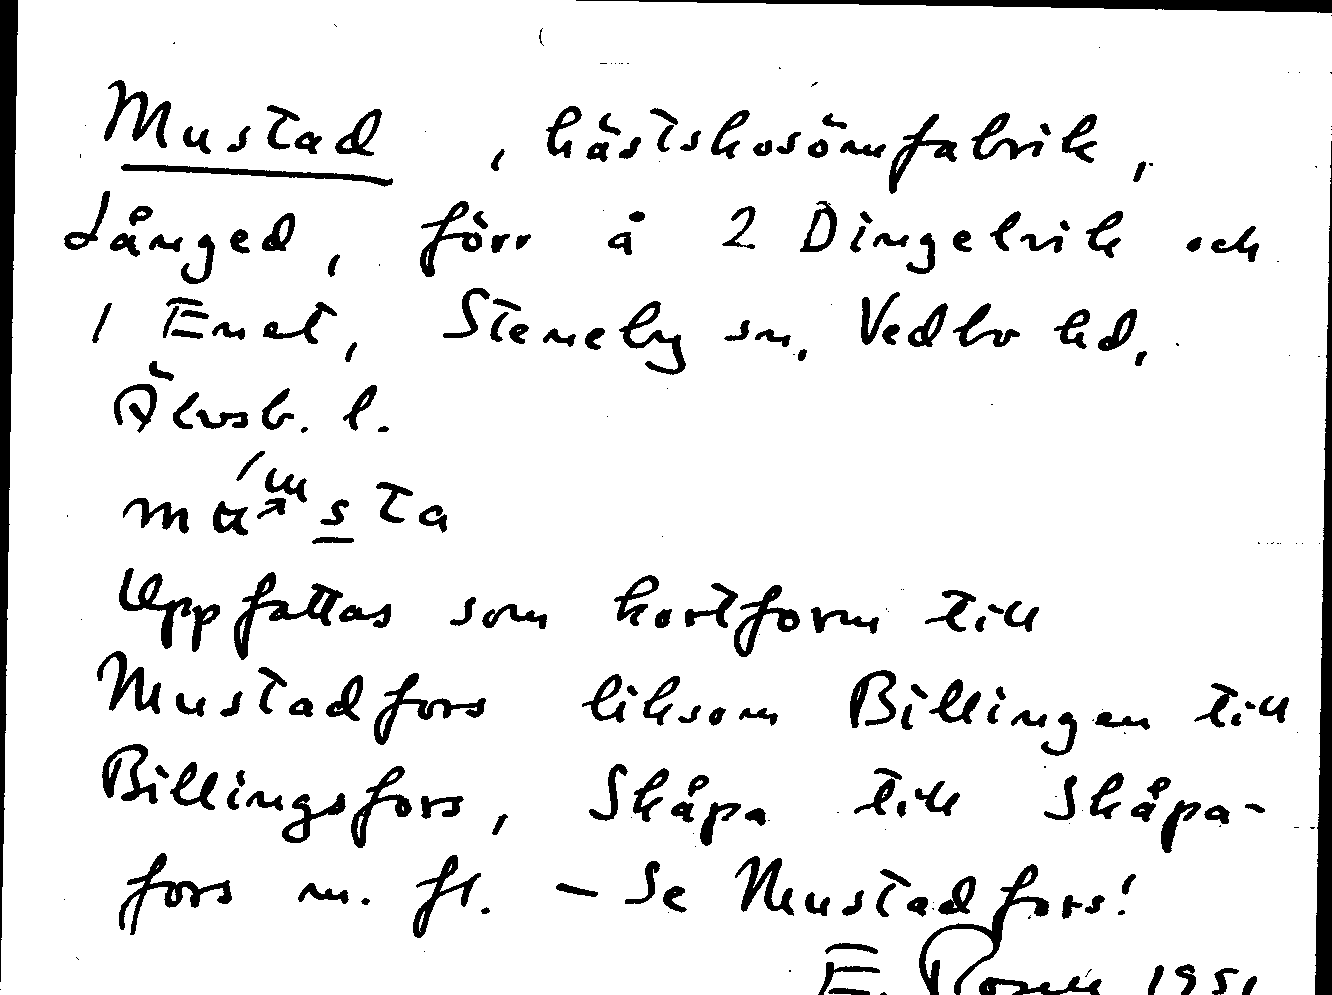 Mustad, hästskosömfabrik,
Långed, förr å 2 Dingelvik och
1 Enet, Steneby sn, Vedbo hd,
Älvsb. l.
Uppfattas som kortform till
Mustadfors liksom Billingen till
Billingsfors, Skåpa till Skåpa-
fors m. fl. – Se Mustadfors!
E. 1951